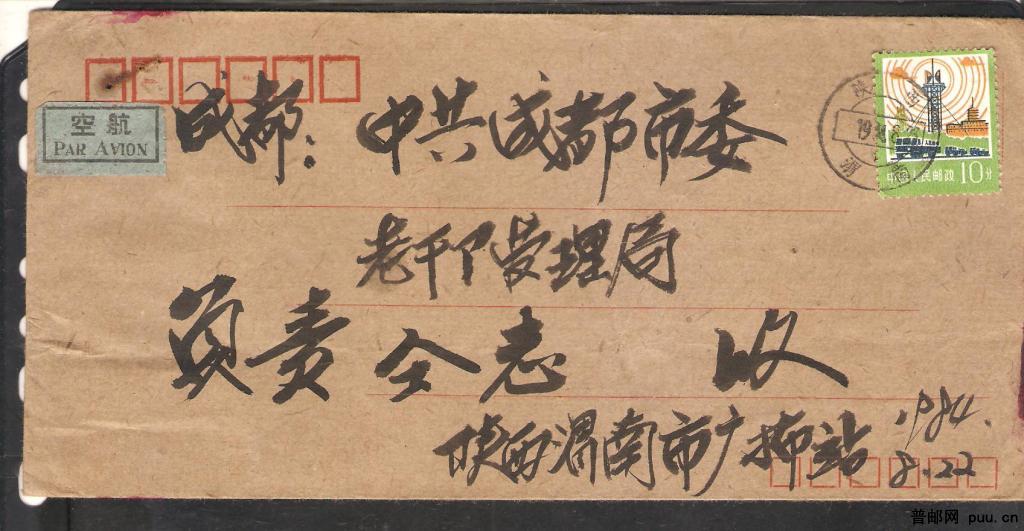 空航
PAR AVION
成都：中共成都市委
中国人民邮政 10分
老干下管理局
负责仝志 收
陕西渭南市广播站
1984.
8.22
普邮网 puu.cn